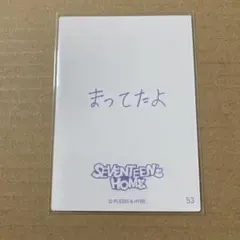 まってたよ
SEVENTEEN's
HOME
53